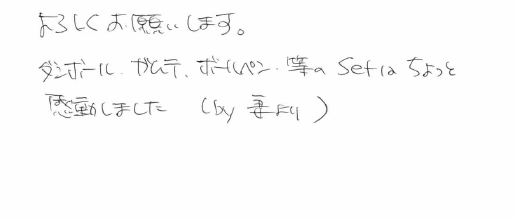 よろしくお願いします。
ダンボール、ガムテ、ボールペン、等のSetはちょっと
感動しました (by 妻より)